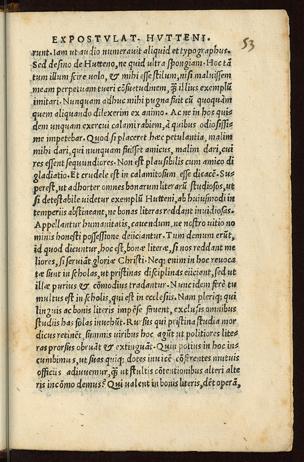 EXPOSTVLAT. HVTTENI.
53
runt. Iam ut audio numerauit aliquid et typographus.
Sed desino de Hutteno, ne quid ultra spongiam. Hoc tã
tum illum scire uolo, & mihi esse stilum, nisi maluissem
meam perpetuam tueri cõsuetudinem, q̃ illius exemplũ
imitari. Nunquam adhuc mihi pugna fuit cũ quoquam
quem aliquando dilexerim ex animo. Ac ne in hos quis
dem unquam exercui calami rabiem, à quibus odiosissi
me impetebar. Quod si placeret hæc petulantia, malim
mihi dari, qui nunquam fuisset amicus, malim dari, cui
res essent sequundiores. Non est plausibilis cum amico di
gladiatio. Et crudele est in calamitosum esse dicacẽ. Su
perest, ut adhorter omnes bonarum literarũ studiosos, ut
si detestabile uidetur exemplũ Hutteni, ab huiusmodi in
temperiis abstineant, ne bonas literas reddant inuidiosas.
Appellantur humanitatis, cauendum, ne nostro uitio no
minis honesti possessione deiiciantur. Tum demum erũt,
id quod dicuntur, hoc est, bonæ literæ, si nos reddant me
liores, si seruiãt gloriæ Christi. Neq; enim in hoc reuoca
tæ sunt in scholas, ut pristinas disciplinas eiiciant, sed ut
illæ purius & cõmodius tradantur. Nunc idem ferè tu
multus est in scholis, qui est in ecclesiis. Nam pleriq; qui
linguis ac bonis literis impẽse fauent, exclusis omnibus
studiis has solas inuehũt. Rursus qui pristina studia mor
dicus retinẽt, summis uiribus hoc agũt ut politiores lite
ras prorsus obruãt & extinguãt. Quin potius in hoc in
cumbimus, ut suas quiq; dotes inuicẽ cõferentes mutuis
officiis adiuuemur, q̃ ut stultis cõtentionibus alteri alte
ris incõmodemus? Qui ualent in bonis literis, dẽt operã,